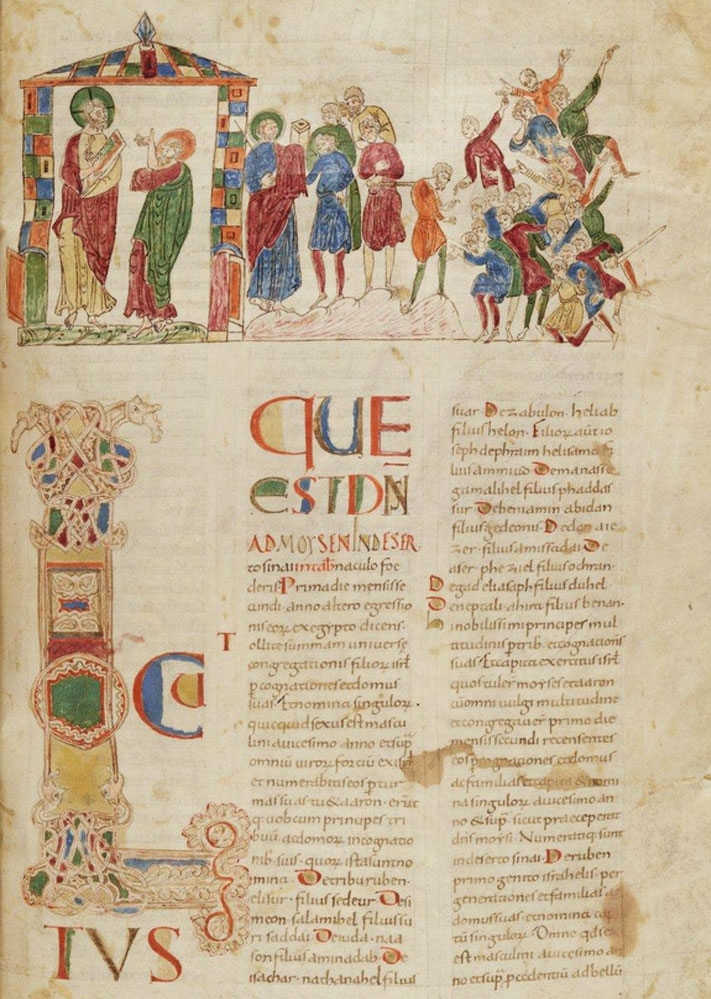 LOCU
TVS
QUĒ
ESTDN̄S
ADMOYSENINDESER
to sinai intab̄naculo foe
deris. Prima die mensis se
cundi. anno altero egressio
nis eoꝝ exegypto dicens.
Tollite summam universe
congregationis filioꝝ isr̄l
ꝑ cognationes et domus
suas. Et nomina singuloꝝ.
quicquid sexus est mascu
lini avicesimo anno et sup̄.
omniū viroꝝ fortiū ex isr̄l
et numerabitis eos ꝑ tur
mas suas tu & aaron. erūt
q; vobcum principes tri
buū ac domoꝝ incognatio
nib; suis. quoꝝ ista sunt no
mina. De tribu ruben.
elisur. filius sedeur. De si
meon. salamihel filius su
ri saddai. De iuda. naa
son filius aminadab. De
isachar. nathanahel filius
suar. De zabulon. heliab
filius helon. Filioꝝ autē io
seph de ephraim helisama fi
lius ammiud. De manasse
gamalihel filius phaddas
sur. De beniamin abidan
filius gedeonis. De dan aie
zer. filius amissadai. De
aser. phegiel filius ochran.
De gad eliasaph filius duhel
De neptali. ahira filius henan.
hi nobilissimi principes mul
titudinis ꝑ trib; et cognationes
suas. Et capita exercitus isr̄l
quos tuler̄ moyses et aaron
cū omni vulgi multitudine
et congregaver̄ primo die
mensis secundi. recensentes
eos ꝑ cognationes et domus
ac familias et capita & nomi
na singuloꝝ avicesimo an
no & sup̄. sicut p̄ceperat
dn̄s moysi. Numeratiq; sunt
indeserto sinai. De ruben
primogenito israhelis. per
generationes et familias ac
domus suas. et nomina capi
tū singuloꝝ. Omne qd sex;
est masculini avicesimo an
no et sup̄ ꝓcedentiū ad bellū